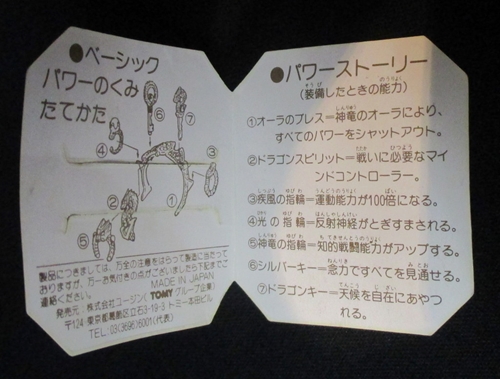 ●ベーシック
パワーのくみ
たてかた
⑥
⑦
④
③
①
②
⑤
製品につきましては、万全の注意をはらって製造に当たって
おりますが、万一お気付きの点がございましたら下記までご
連絡ください。
MADE IN JAPAN
発売元：株式会社ユージン(TOMYグループ企業)
〒124 東京都葛飾区立石3-19-3 トミー本田ビル
TEL:03(3696)6001(代表)
●パワーストーリー
(装備したときの能力)
①オーラのブレス＝神竜のオーラにより、
すべてのパワーをシャットアウト。
②ドラゴンスピリット＝戦いに必要なマイ
ンドコントローラー。
③疾風の指輪＝運動能力が100倍になる。
④光の指輪＝反射神経がとぎすまされる。
⑤神竜の指輪＝知的戦闘能力がアップする。
⑥シルバーキー＝念力ですべてを見通せる。
⑦ドラゴンキー＝天候を自在にあやつ
れる。